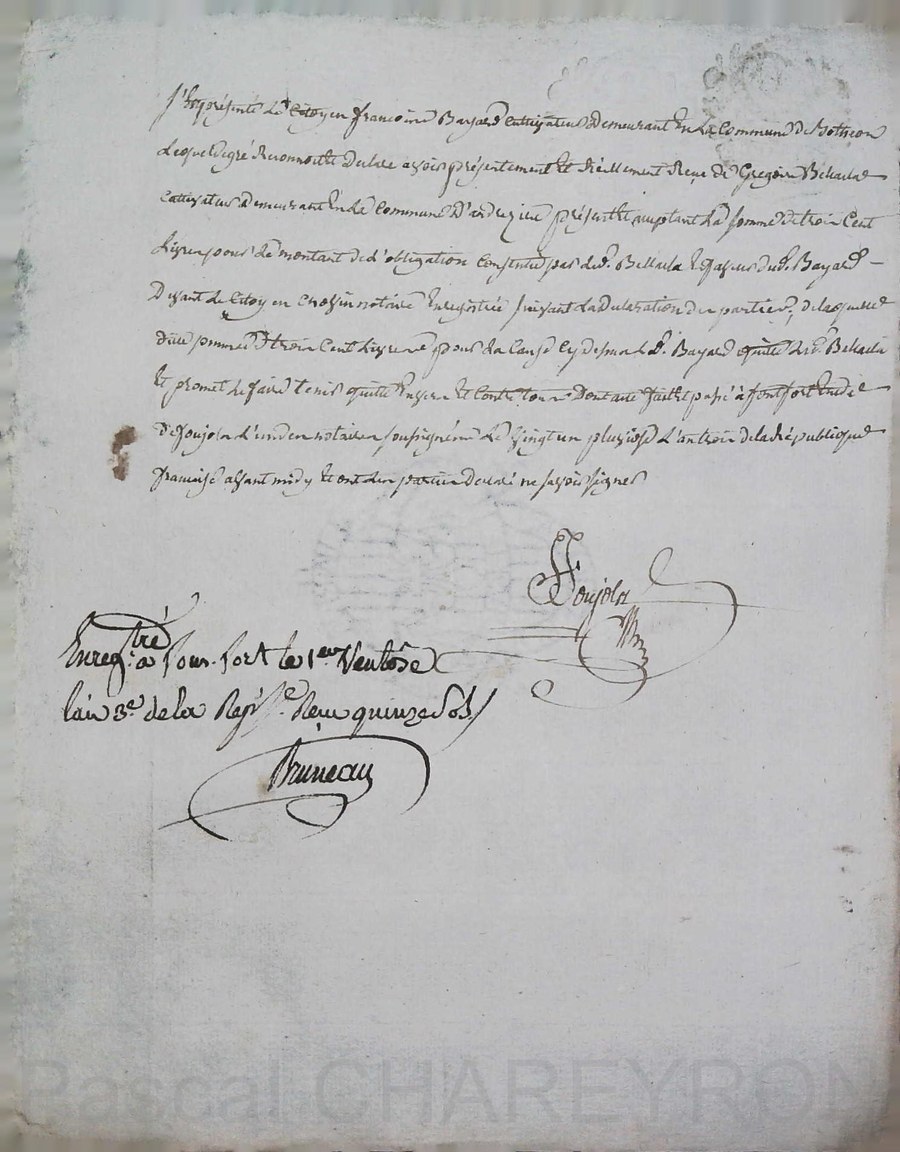 s'est présenté le Citoyen françois Bayard Cultivateur Demeurant En La Commune De Botheon
Lequel degré Reconnoit et Declare avoir présentement et Réellement Reçu de Gregoire
Cultivateur Demeurant En La Commune D'andrezieu présent et acceptant La somme de trois Cent
Livres pour le montant de l'obligation Consentie par led. En faveur dud. Bayard
Devant le Citoyen notaire Enregistrée suivant La Declaration des parties, de laquelle
dite somme de trois Cent Livres pour La Cause Cy dessus le d. Bayard quitte led.
Et promet le faire tenir quitte Envers Et Contre tous Dont acte fait et passé à fontfort Etude
De soujola l'un des notaires soussignés Le vingt un pluviose L'an trois de la République
francaise avant midy Et ont les parties declaré ne savoir signer
Soujola
Enregtré à fons-fort le 1er Ventôse
l'an 3e. de la Repe. Reçu quinze sols
Bruneau
Pascal CHAREYRON